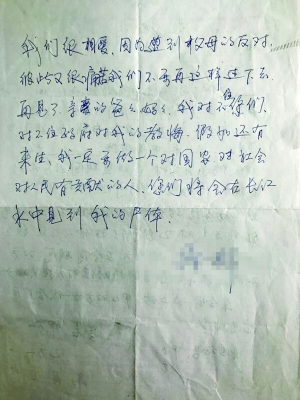 我们很相爱，因为遭到父母的反对，
彼此又很痛苦我们不要再这样过下去
再见了亲爱的爸爸妈妈，我对不起你们，
对不住政府对我的教悔，假如还有
来生，我一定要做一个对国家对社会
对人民有贡献的人，你们将会在长江
水中见到我的尸体。